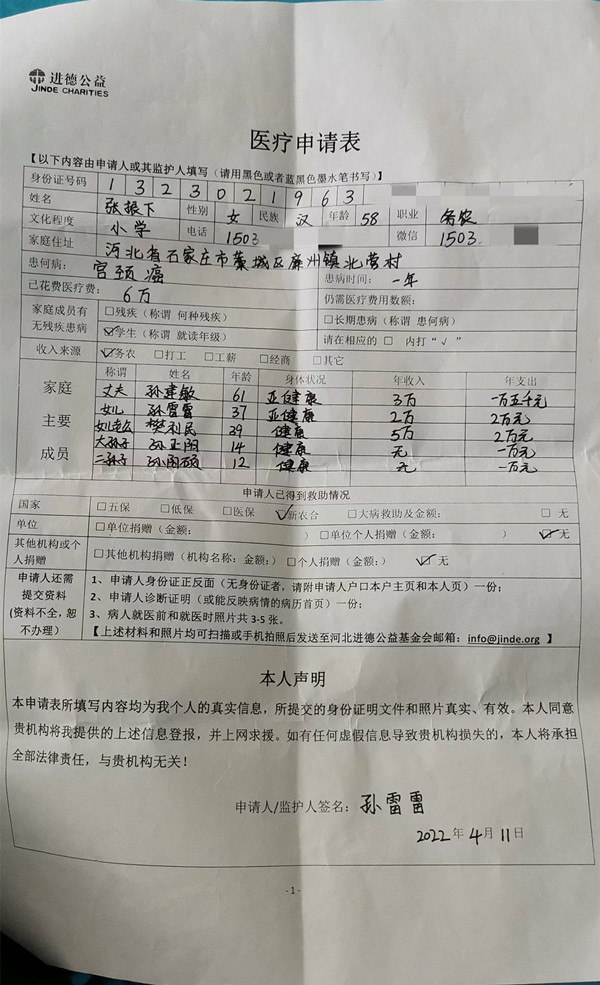 进德公益
JINDE CHARITIES
医疗申请表
【以下内容由申请人或其监护人填写（请用黑色或者蓝黑色墨水笔书写）】
身份证号码 1 3 2 3 0 2 1 9 6 3
姓名 张振下 性别 女 民族 汉 年龄 58 职业 务农
文化程度 小学 电话 1503 微信 1503
家庭住址 河北省石家庄市藁城区廉州镇北营村
患何病： 宫颈癌 患病时间： 一年
已花费医疗费： 6万 仍需医疗费用数额：
家庭成员有无残疾患病 □残疾（称谓 何种残疾） □长期患病（称谓 患何病）
☑学生（称谓 就读年级） 请在相应的 □ 内打“√”
收入来源 ☑务农 □打工 □工薪 □经商 □其它
家庭主要成员 称谓 姓名 年龄 身体状况 年收入 年支出
丈夫 孙建敏 61 亚健康 3万 一万五千元
女儿 孙雷雷 37 亚健康 2万 2万元
女儿老公 樊利民 39 健康 5万 2万元
大孙子 孙正阳 14 健康 无 一万元
二孙子 12 健康 无 一万元
申请人已得到救助情况
国家 □五保 □低保 □医保 ☑新农合 □大病救助及金额： □ 无
单位 □单位捐赠（金额： ） □单位个人捐赠（金额： ） ☑无
其他机构或个人捐赠 □其他机构捐赠（机构名称：金额：） □个人捐赠（金额：） ☑无
申请人还需提交资料（资料不全，恕不办理）
1、申请人身份证正反面（无身份证者，请附申请人户口本户主页和本人页）一份；
2、申请人诊断证明（或能反映病情的病历首页）一份；
3、病人就医前和就医时照片共 3-5 张。
【上述材料和照片均可扫描或手机拍照后发送至河北进德公益基金会邮箱：info@jinde.org 】
本人声明
本申请表所填写内容均为我个人的真实信息，所提交的身份证明文件和照片真实、有效。本人同意
贵机构将我提供的上述信息登报，并上网求援。如有任何虚假信息导致贵机构损失的，本人将承担
全部法律责任，与贵机构无关！
申请人/监护人签名：孙雷雷
2022 年 4 月 11 日
- 1 -